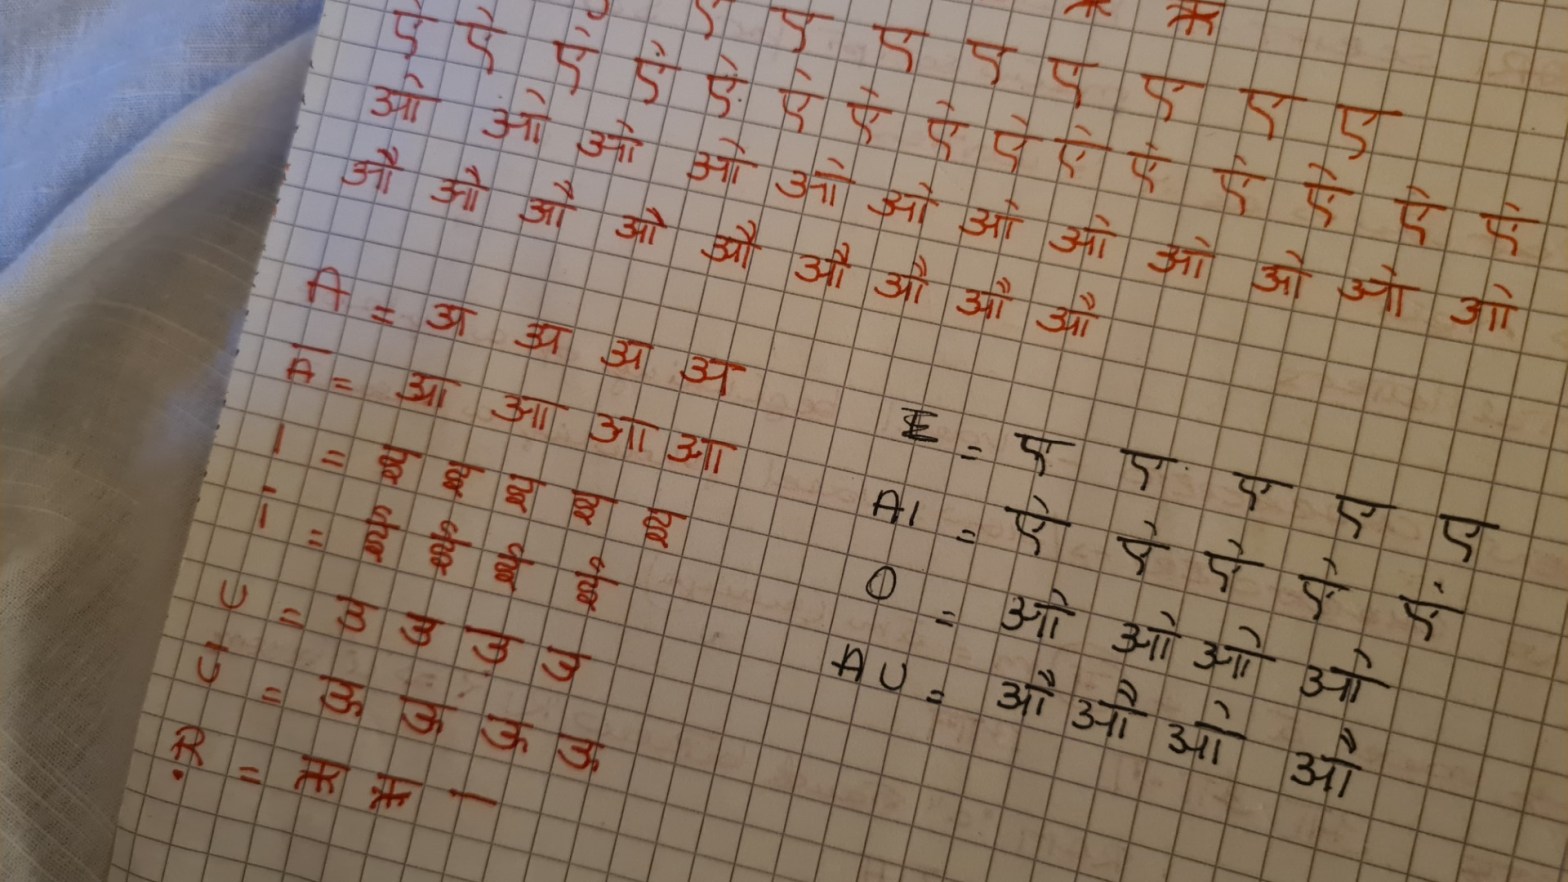 ऋ ऋ
ए ए ए ए ए ए ए ए
ऐ ऐ ऐ ऐ ऐ ऐ ऐ ऐ ऐ ऐ ऐ ऐ ऐ ऐ ऐ
ओ ओ ओ ओ ओ ओ ओ ओ ओ ओ ओ ओ
औ औ औ औ औ औ औ औ औ
A = अ अ अ अ
Ā = आ आ आ आ
I = इ इ इ इ इ
Ī = ई ई ई ई
U = उ उ उ उ
Ū = ऊ ऊ ऊ ऊ
Ṛ = ऋ ऋ ।
E = ए ए ए ए ए
AI = ऐ ऐ ऐ ऐ ऐ
O = ओ ओ ओ ओ
AU = औ औ ओ औ